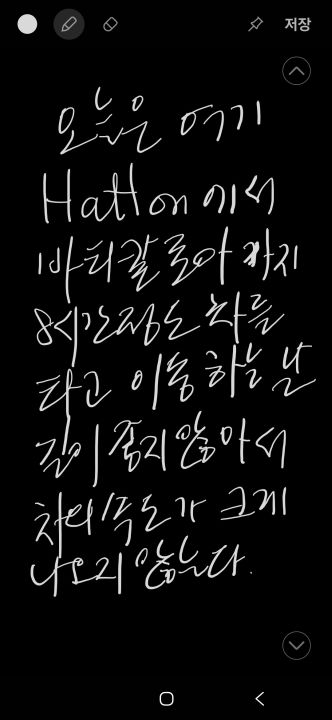 저장
오늘은 여기
Hatton에서
바티칼로아 까지
8시간정도 차를
타고 이동하는 날
길이 좋지않아서
차의 속도가 크게
나오지 않는다.